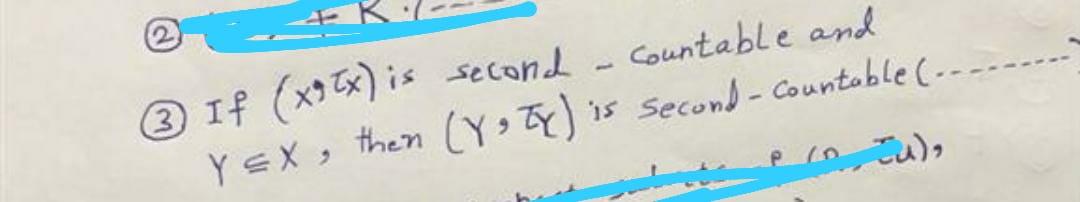 ② + K.(---
③ If (X, τx) is second - Countable and
Y ⊆ X, then (Y, τY) is second - Countable (---------)
τu),